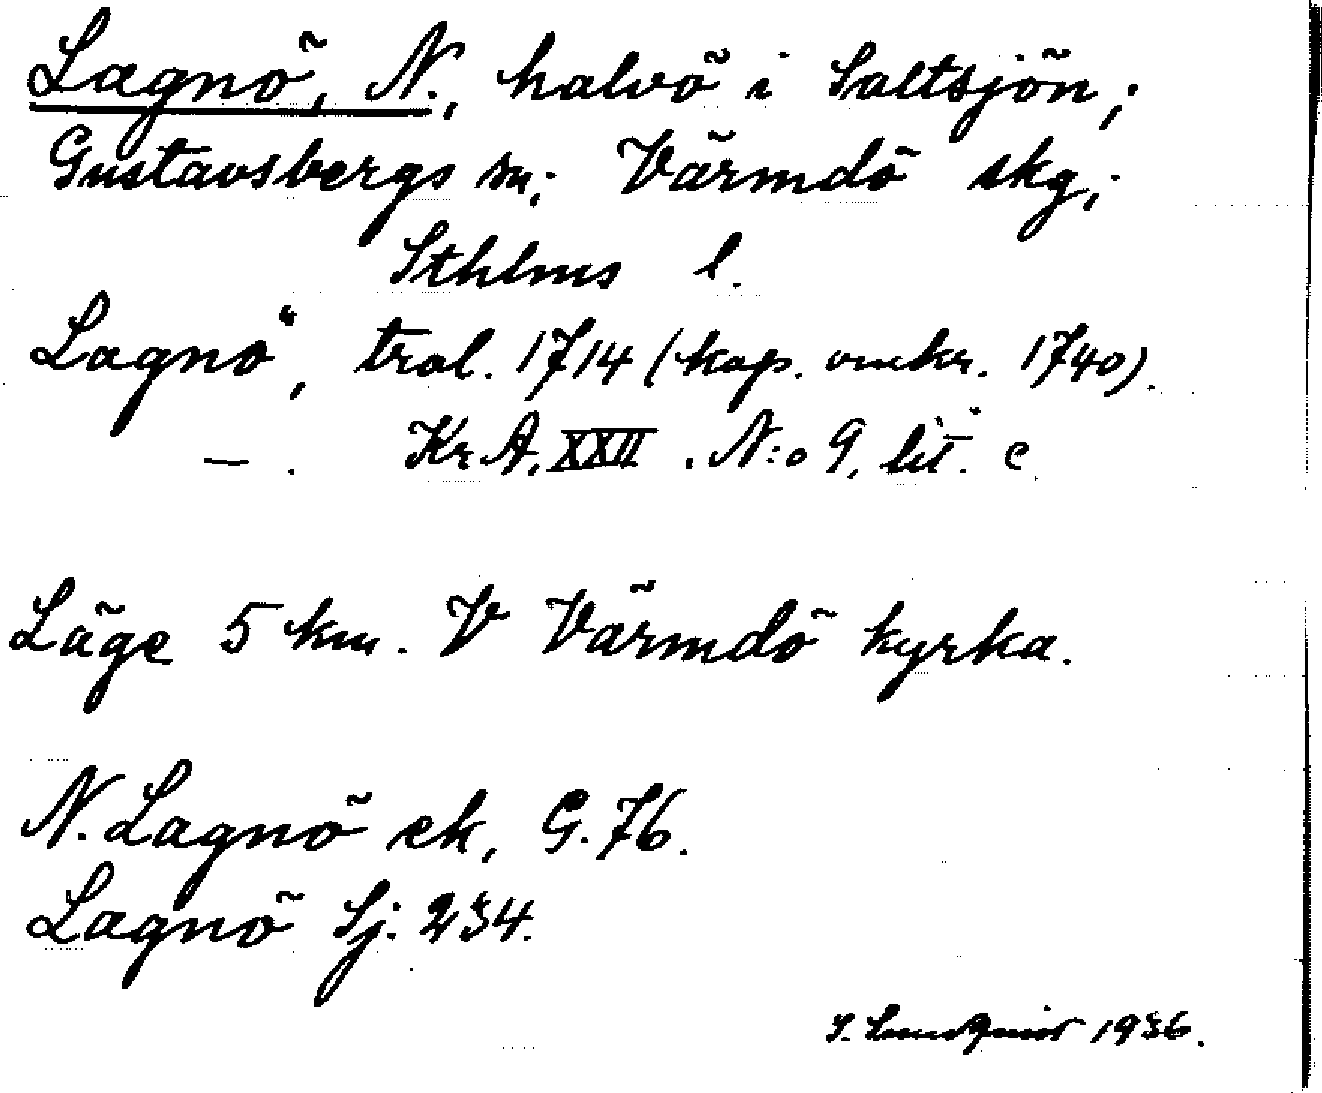 Lagnö, N., halvö i Saltsjön,;
Gustavsbergs sn.; Värmdö skg,;
Sthlms l.
Lagnö, tral. 1714 (kop. omkr. 1740).
— . Kr.A. XXII . N:o 9, lit. c
Läge 5 km. V Värmdö kyrka.
N. Lagnö ek, G. 76.
Lagnö Sj. 234.
S. Lundquist 1936.